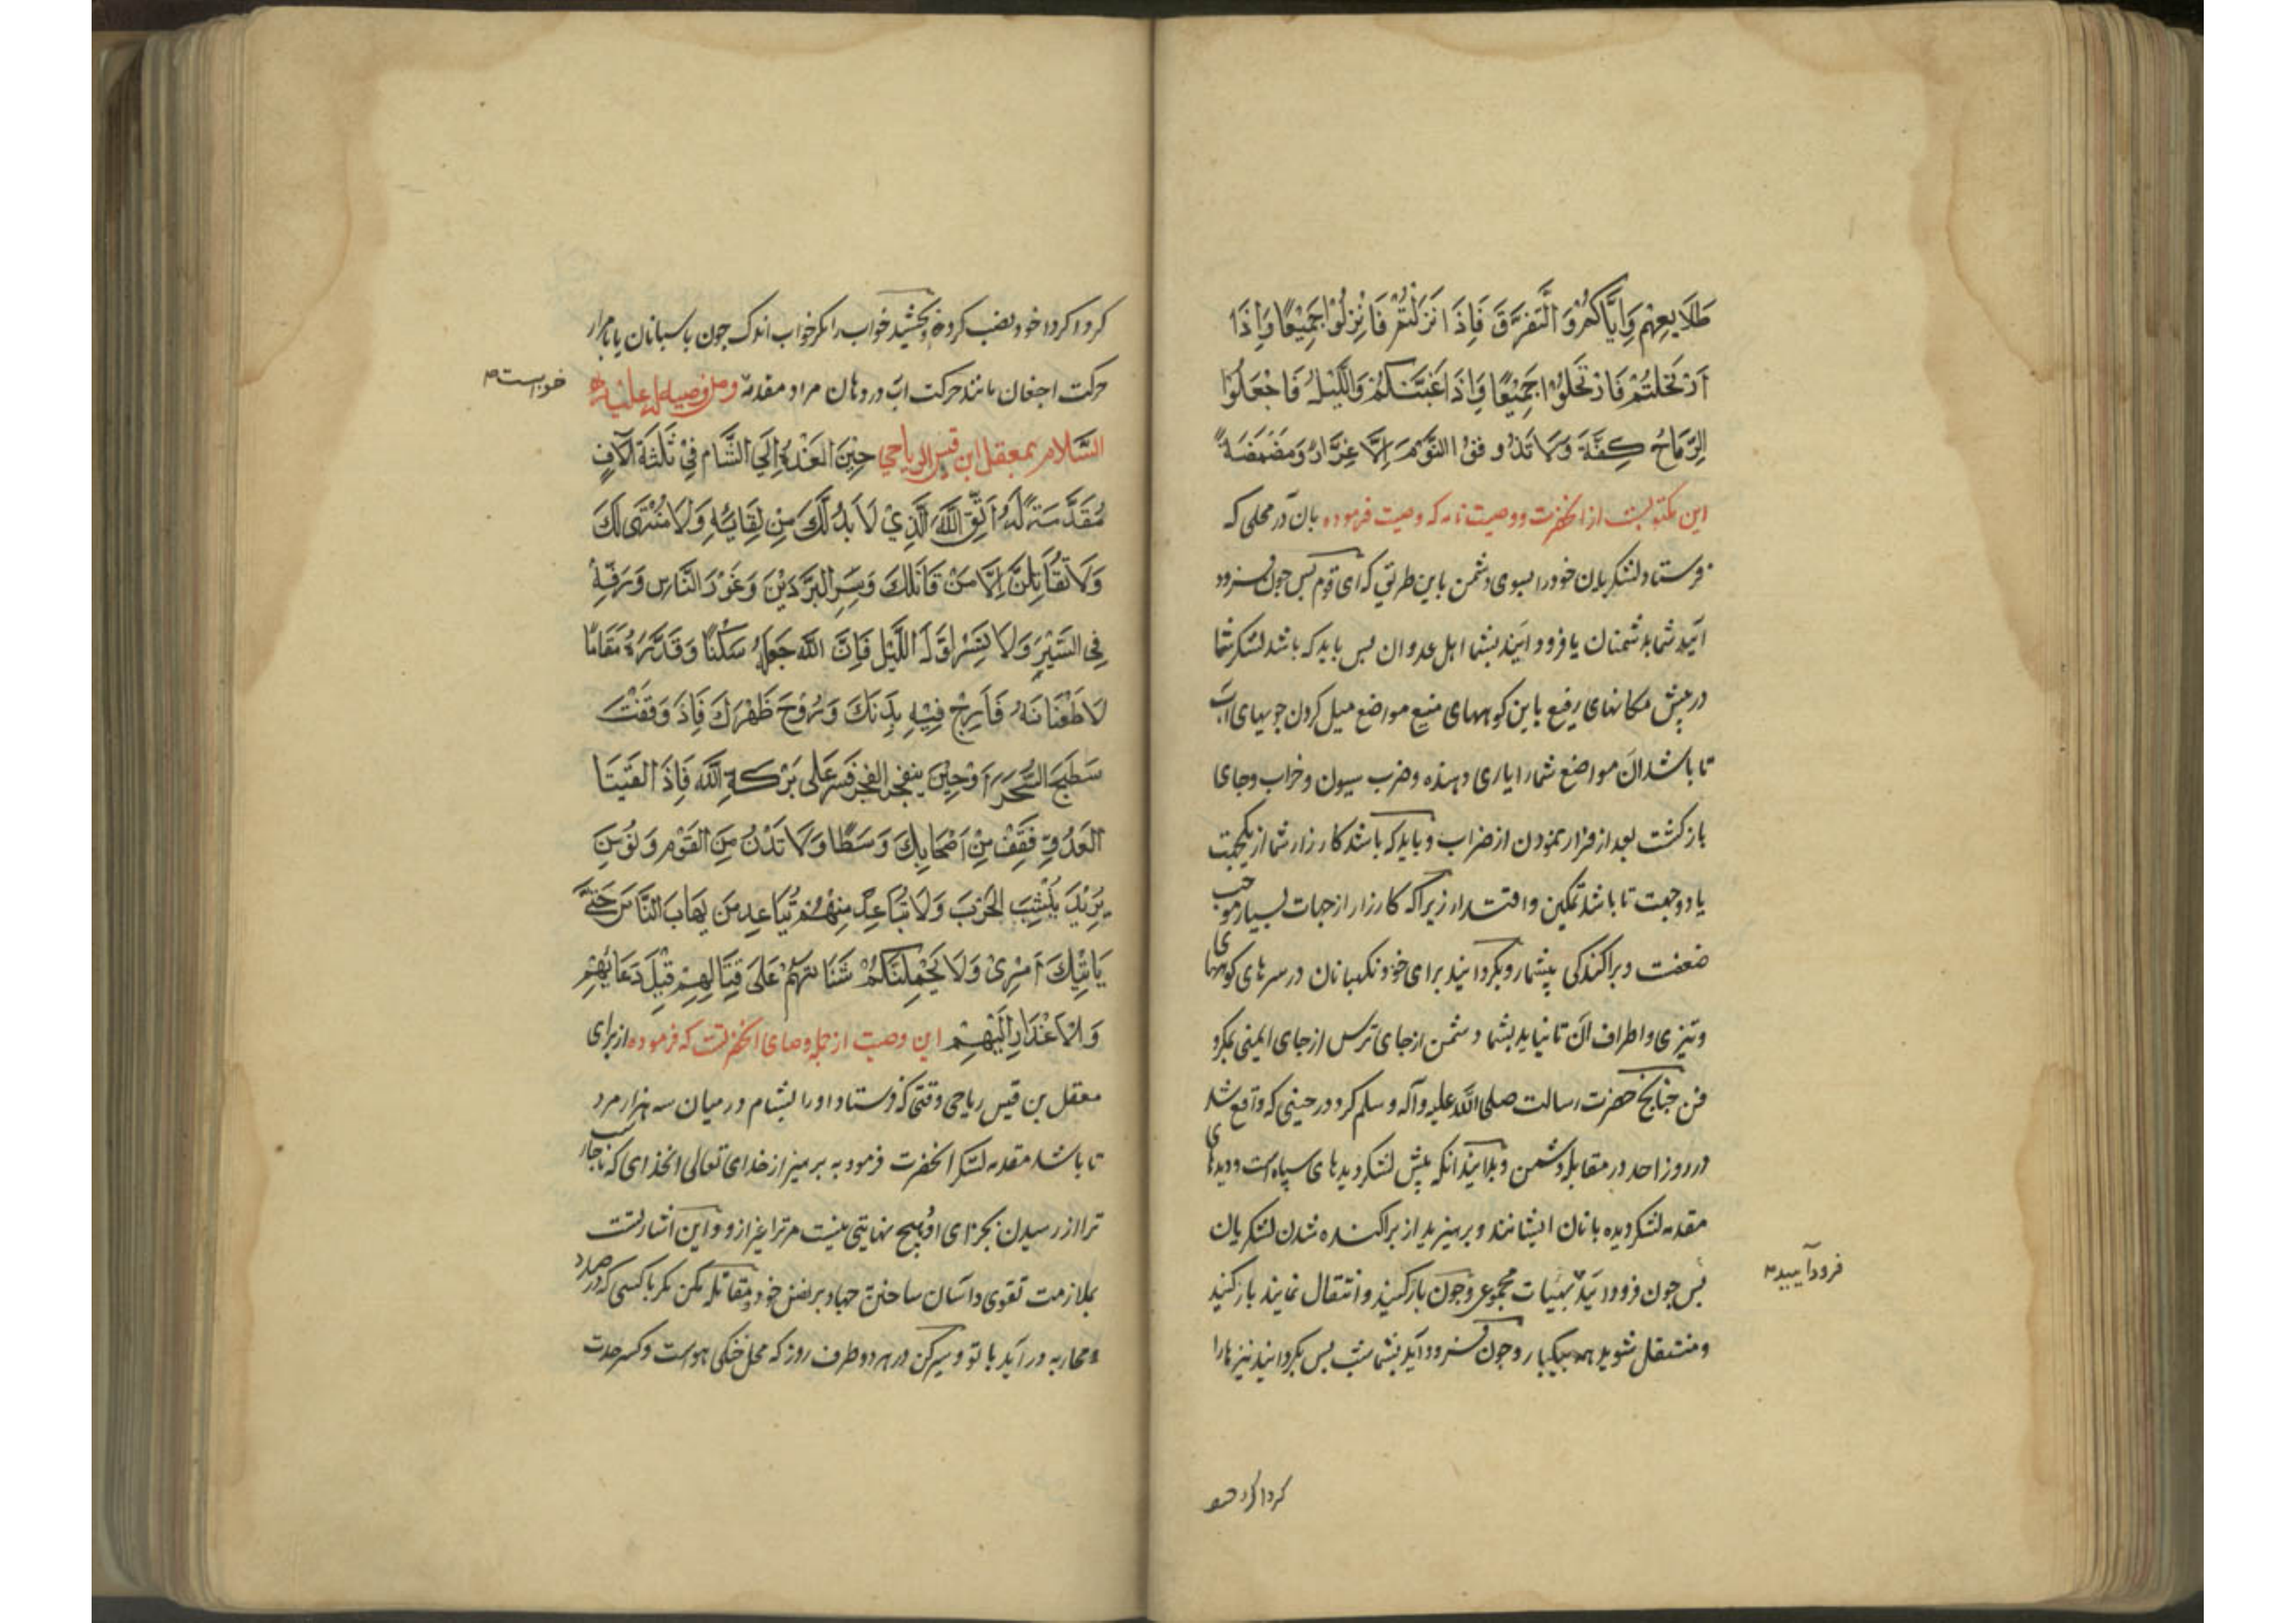 طَلَايِعِهِمْ وَاِيَّاكُمْ وَ التَّفَرَّقَ فَاِذَا نَزَلْتُمْ فَانْزِلُوْا جَمِيْعًا وَاِذَا
اَرْتَحَلْتُمْ فَارْتَحَلُوْا جَمِيْعًا وَاِذَا غَشَّتْكُمْ وَاللَّيْلُ فَاجْعَلُوْا
الرِّمَاحَ كِفَّةً وَلَا تَذُوقُوْا النَّوْمَ اِلَّا غِرَّارً وَمَضْمَضَةً
این مکتوبیست از انحضرت ووصیت نامه که وصیت فرموده بان در محلی که
فرستاد لشکریان خود را بسوی دشمن باین طریق که ای قوم پس چون فرود
آیید شما بدشمنان یا فرود آیند بشما اهل عدوان پس باید که باشد لشکر شما
در پیش مکانهای رفیع یا بن کوههای منیع مواضع میل کردن جویهای آب
تا باشد آن مواضع شما را یاری دهنده وضرب سیون وخراب وجای
بازکشت بعد از فرار نمودن از ضراب وباید که باشد کارزار شما از یکجهت
یا دو جهت تا باشد تمکین واقتدار زیرا که کارزار از جهات بسیار موجب
ضعفت وپراکندکی بیشمار وبکردانید برای خود نکهبانان در سرهای کوههای
وتیزی واطراف آن تا نیاید بشما دشمن از جای ترس از جای ایمنی بمکرو
فن چنانچ حضرت رسالت صلی الله علیه وآله وسلم کرد در حینی که واقع شد
در روز احد در مقابله دشمن وبدانید آنکه پیش لشکر دیدهای سپاه است ودیدهای
مقدمه لشکر دیده بانان ایشانند وبرهیزید از پراکنده شدن لشکریان
پس چون فرود آیید بهیات مجموعی وچون بارکنید وانتقال نمایند بارکنید
فرود آیید
ومنتقل شوید همه بیکبار وچون فرود آید بشما شب پس بکردانید نیزهارا
کردا کرد خود
کردا کرد خود نصب کرده وبچشید خواب را مکر خواب اندک چون پاسبانان یا بامرار
حرکت اجفان مانند حرکت آب در دهان مراد مقدمه ومن وصیة له علیه
خوابست
السَّلَام بمعقل ابن قیس الریاحی حِيْنَ اَنْفَذَهُ اِلَي الشَّام فِيْ ثَلَثَةِ آلَافٍ
مُقَدَّمَتَهً لَّهُ اِتَّقِ اللّٰهَ الَّذِيْ لَا بُدَّ لَكَ مِنْ لِقَائِهِ وَلَا مُنْتَهٰى لَكَ
وَلَا تُقَاتِلَنَّ اِلَّا مَنْ قَاتَلَكَ وَسِرِ الْبَرْدَيْنِ وَغَوِّرْ النَّاسِ وَرَفِّهْ
فِي السَّيْرِ وَلَا تَسْرِ اَوَّلَ اللَّيْلِ فَاِنَّ اللّٰهَ جَعَلَهُ سَكَنًا وَقَدَّرَهُ مُقَامًا
لَا ظَعْنًا نَهُ فَاَرِحْ فِيْهِ بَدَنَكَ وَرَوِّحْ ظَهْرَكَ فَاِذَ وَقَفْتَ
يَنْفَجِرُ الْفَجْرُ فَسِرْ عَلَى بَرَكَةِ اللّٰهِ فَاِذَ الْقَيْتَ
الْعَدُوَّ فَقِفْ مِنْ اَصْحَابِكَ وَسَطًا وَلَا تَدْنُ مِنَ الْقَوْمِ دَنُوَّ مَنْ
يُرِيْدُ يَنْشِبَ الْحَرْبَ وَلَا تُبَاعِدْ مِنْهُمْ تُبَاعِدِ مَنْ يَهَابُ النَّاسَ حَتّٰى
يَاتِيَكَ اَمْرِيْ وَلَا يَحْمِلَنَّكُمْ شَنَانُهُمْ عَلَى قِتَالِهِمْ قَبْلَ دُعَائِهِمْ
وَالْاَعْذَارِ اِلَيْهِمْ این وصیت از جمله وصایای انحضرتست که فرموده از برای
معقل بن قیس ریاحی وقتی که فرستاد اورا بشام در میان سه هزار مرد
تا باشد مقدمه لشکر انحضرت فرمود به برهیز از خدای تعالی انخدای که ناچار است
ترا از رسیدن بجزای او وهیچ نهایتی نیست مر ترا غیر از او واین اشارتست
بملازمت تقوی واسان ساختن جهاد بر نفس خود ومقاتله مکن مکر با کسی که در صدد
محاربه در آید با تو وسیر کن در هر دو طرف روز که محل خنکی هواست وکسر حدت